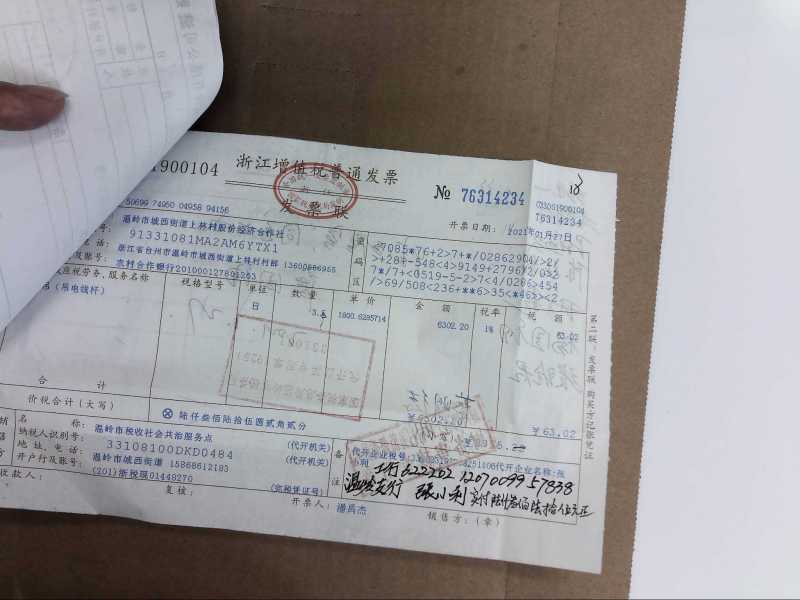 1900104 浙江增值税普通发票 № 76314234 033001900104
76314234
发票联
开票日期: 2021年01月27日
50699 74950 04958 94156
温岭市城西街道上林村股份经济合作社
91331081MA2AM6YTX1
浙江省台州市温岭市城西街道上林村村部 13600666955
农村合作银行201000127801263
密码区
7085*76+2>7+*/02862904/>2/
>+28+-548<4>9149+2796/2/0>2
7*/7+<0519-5-2>7<4/0286>454
/>69/508<236+**6>35<*46>><2
应税劳务、服务名称 规格型号 单位 数量 单价 金额 税率 税额
(吊电线杆) 日 3.5 1800.6285714 6302.20 1% 63.02
合计 ¥63.02
价税合计(大写) ⊗陆仟叁佰陆拾伍圆贰角贰分
第二联:发票联 购买方记账凭证
名称: 温岭市税收社会共治服务点 (代开机关)
纳税人识别号: 33108100DKD0484 (代开机关)
地址、电话: 温岭市城西街道 15868612183
开户行及账号: (201)浙税现01448270 (完税凭证号)
备注
代开企业税号: 代开企业名称:张
小利 工行622202 1207009957838
温岭支行 张小利 实付陆仟叁佰陆拾伍元正
收款人: 复核: 开票人: 潘禹杰 销售方:(章)